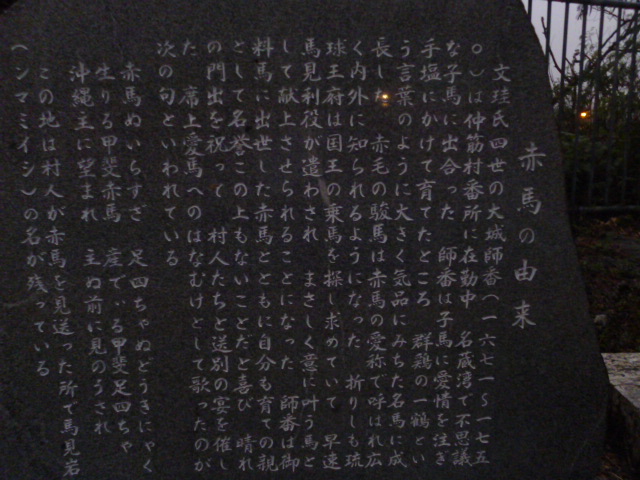 赤馬の由来
文珪氏四世の大城師番(一六七一～一七五
〇)は仲筋村番所に在勤中　名蔵湾で不思議
な子馬に出合った　師番は子馬に愛情を注ぎ
手塩にかけて育てたところ　群鶏の一鶴とい
う言葉のように大きく気品にみちた名馬に成
長した　赤毛の駿馬は赤馬の愛称で呼ばれ広
く内外に知られるようになった　折りしも琉
球王府は国王の乗馬を探し求めていて　早速
馬見利役が遣わされ　まさしく意に叶う馬と
して献上させられることになった　師番は御
料馬に出世した赤馬とともに自分も育ての親
として名誉この上もないことだと喜び　晴れ
の門出を祝って　村人たちと送別の宴を催し
た　席上愛馬へのはなむけとして歌ったのが
次の句といわれている
赤馬ぬいらすざ　足四ちゃぬどうきにゃく
生りる甲斐赤馬　産でいる甲斐足四ちゃ
沖縄主に望まれ　主ぬ前に見のうされ
この地は村人が赤馬を見送った所で馬見岩
(ンマミイシ)の名が残っている